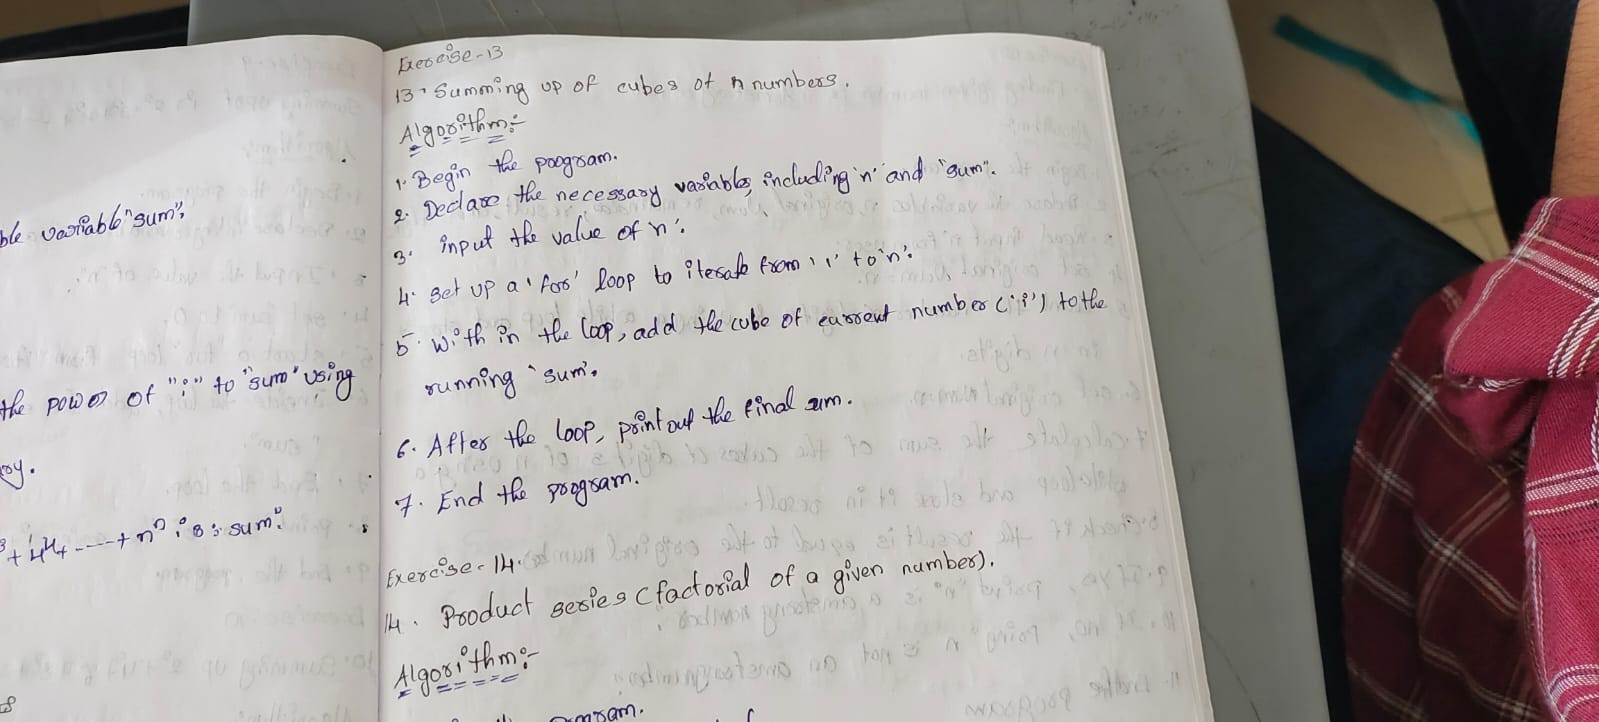 ble variable "sum";
the power of "i" to "sum" using
Exercise-13
13. Summing up of cubes of n numbers.
Algorithm:-
1. Begin the program.
2. Declare the necessary variables, including 'n' and "sum".
3. input the value of 'n'.
4. set up a 'for' loop to iterate from '1' to 'n'.
5. with in the loop, add the cube of current number ('i') to the
running 'sum'.
6. After the loop, print out the final sum.
7. End the program.
Exercise-14.
14. Product series (factorial of a given number).
Algorithm:-